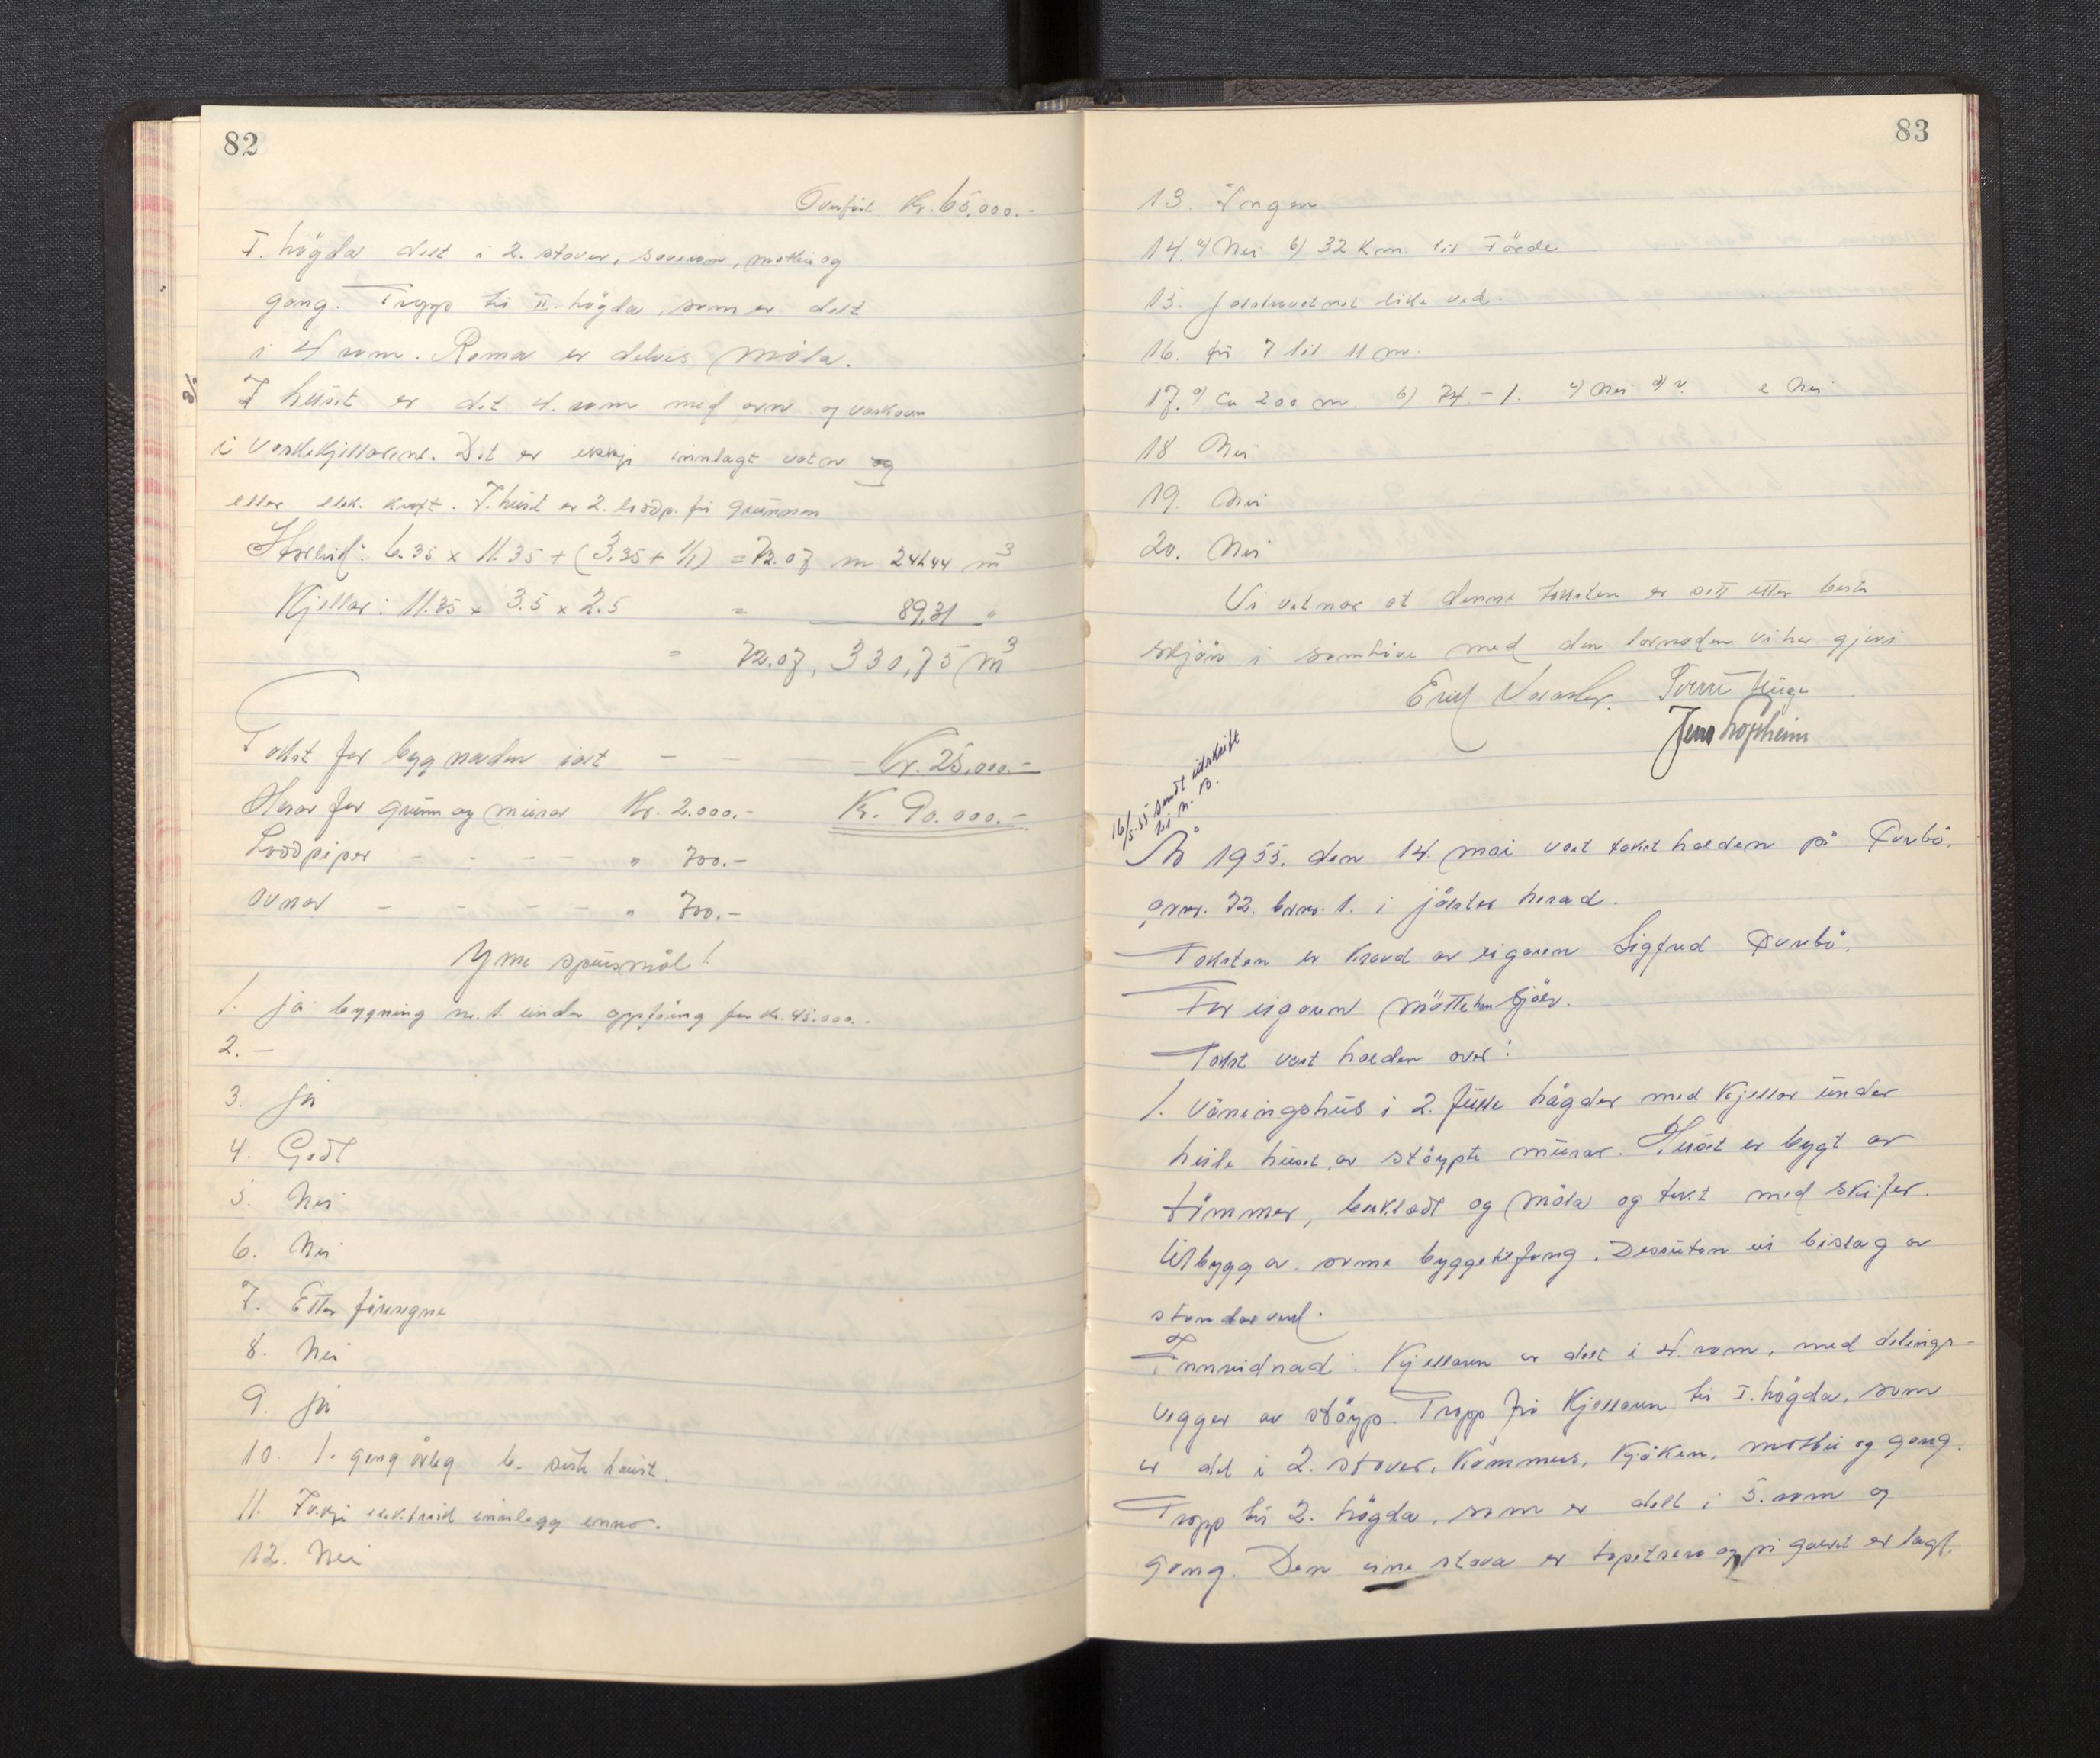 82
Overført Kr. 65,000.-
I. högda delt i 2. stover, soverom, matbu og
gang. Tropp til II. högda, som er delt
i 4 rom. Roma er delvis måla.
I huset er det 4. rom med omn og vaskaum
i vaskekjellarene. Det er ikkje innlagt vatn og
eller elek. kraft. I huset er 2. lodp. frå grunnen
Storleik: 6.35 x 11.35 + (3.35 + 1/1) = 72.07 m 241.44 m³
Kjellar: 11.35 x 3.5 x 2.5 = 89,31 "
= 72.07, 330,75 m³
Takst for bygnaden isit — Kr. 25,000.-
Herav for grunn og murar Kr. 2.000.- Kr. 90.000.-
Lodpiper - - - - " 700.-
ovnar - - - - - " 700.-
Yme spursmål!
1. ja bygning nr. 1. under oppføring for kr. 45.000.-
2. -
3. ja
4. Godt
5. Nei
6. Nei
7. Etter
8. Nei
9. ja
10. 1. gong årleg b. siste haust.
11. Ikkje elektrisk innlegg enno.
12. Nei
83
13. Ingen
14. a) Nei b) 32 Km. til Förde
15. Jolstravatnet like ved.
16. frå 7 til 11 m.
17. a) Ca 200 m. b) 74 - 1. c) Nei d) v. e Nei
18 Nei
19. Nei
20. Nei
Vi vitnar at denne taksten er sett etter beste
skjön i samhöve med den lovnaden vi har gjevi
Jens Löpheim
16/5-55 sendt utskrift
til N. B.
År 1955. den 14. mai vart takst halden på Dvrbö,
gnr. 72. brnr. 1. i jölster herad.
Taksten er kravd av eigaren Sigfred Dvrbö.
For eigaren mötte han sjölv.
Takst vart halden over:
1. Våningshus i 2. fulle högder med Kjellar under
heile huset, av stöypte murar. Huset er bygt av
tömmer, bukledt og måla og tekt med skifer.
Utbygg av same byggetilfang. Dessutan eit bislag av
standarverk.
Innreidnad: Kjellaren er delt i 4. rom, med delings-
vegger av stöyp. Tropp frå Kjellaren til I. högda, som
er delt i 2. stover, Kammers, Kjöken, matbu og gang.
Tropp til 2. högda, som er delt i 5. rom og
gang. Den eine stova er tapetsera og på golvet er lagt,